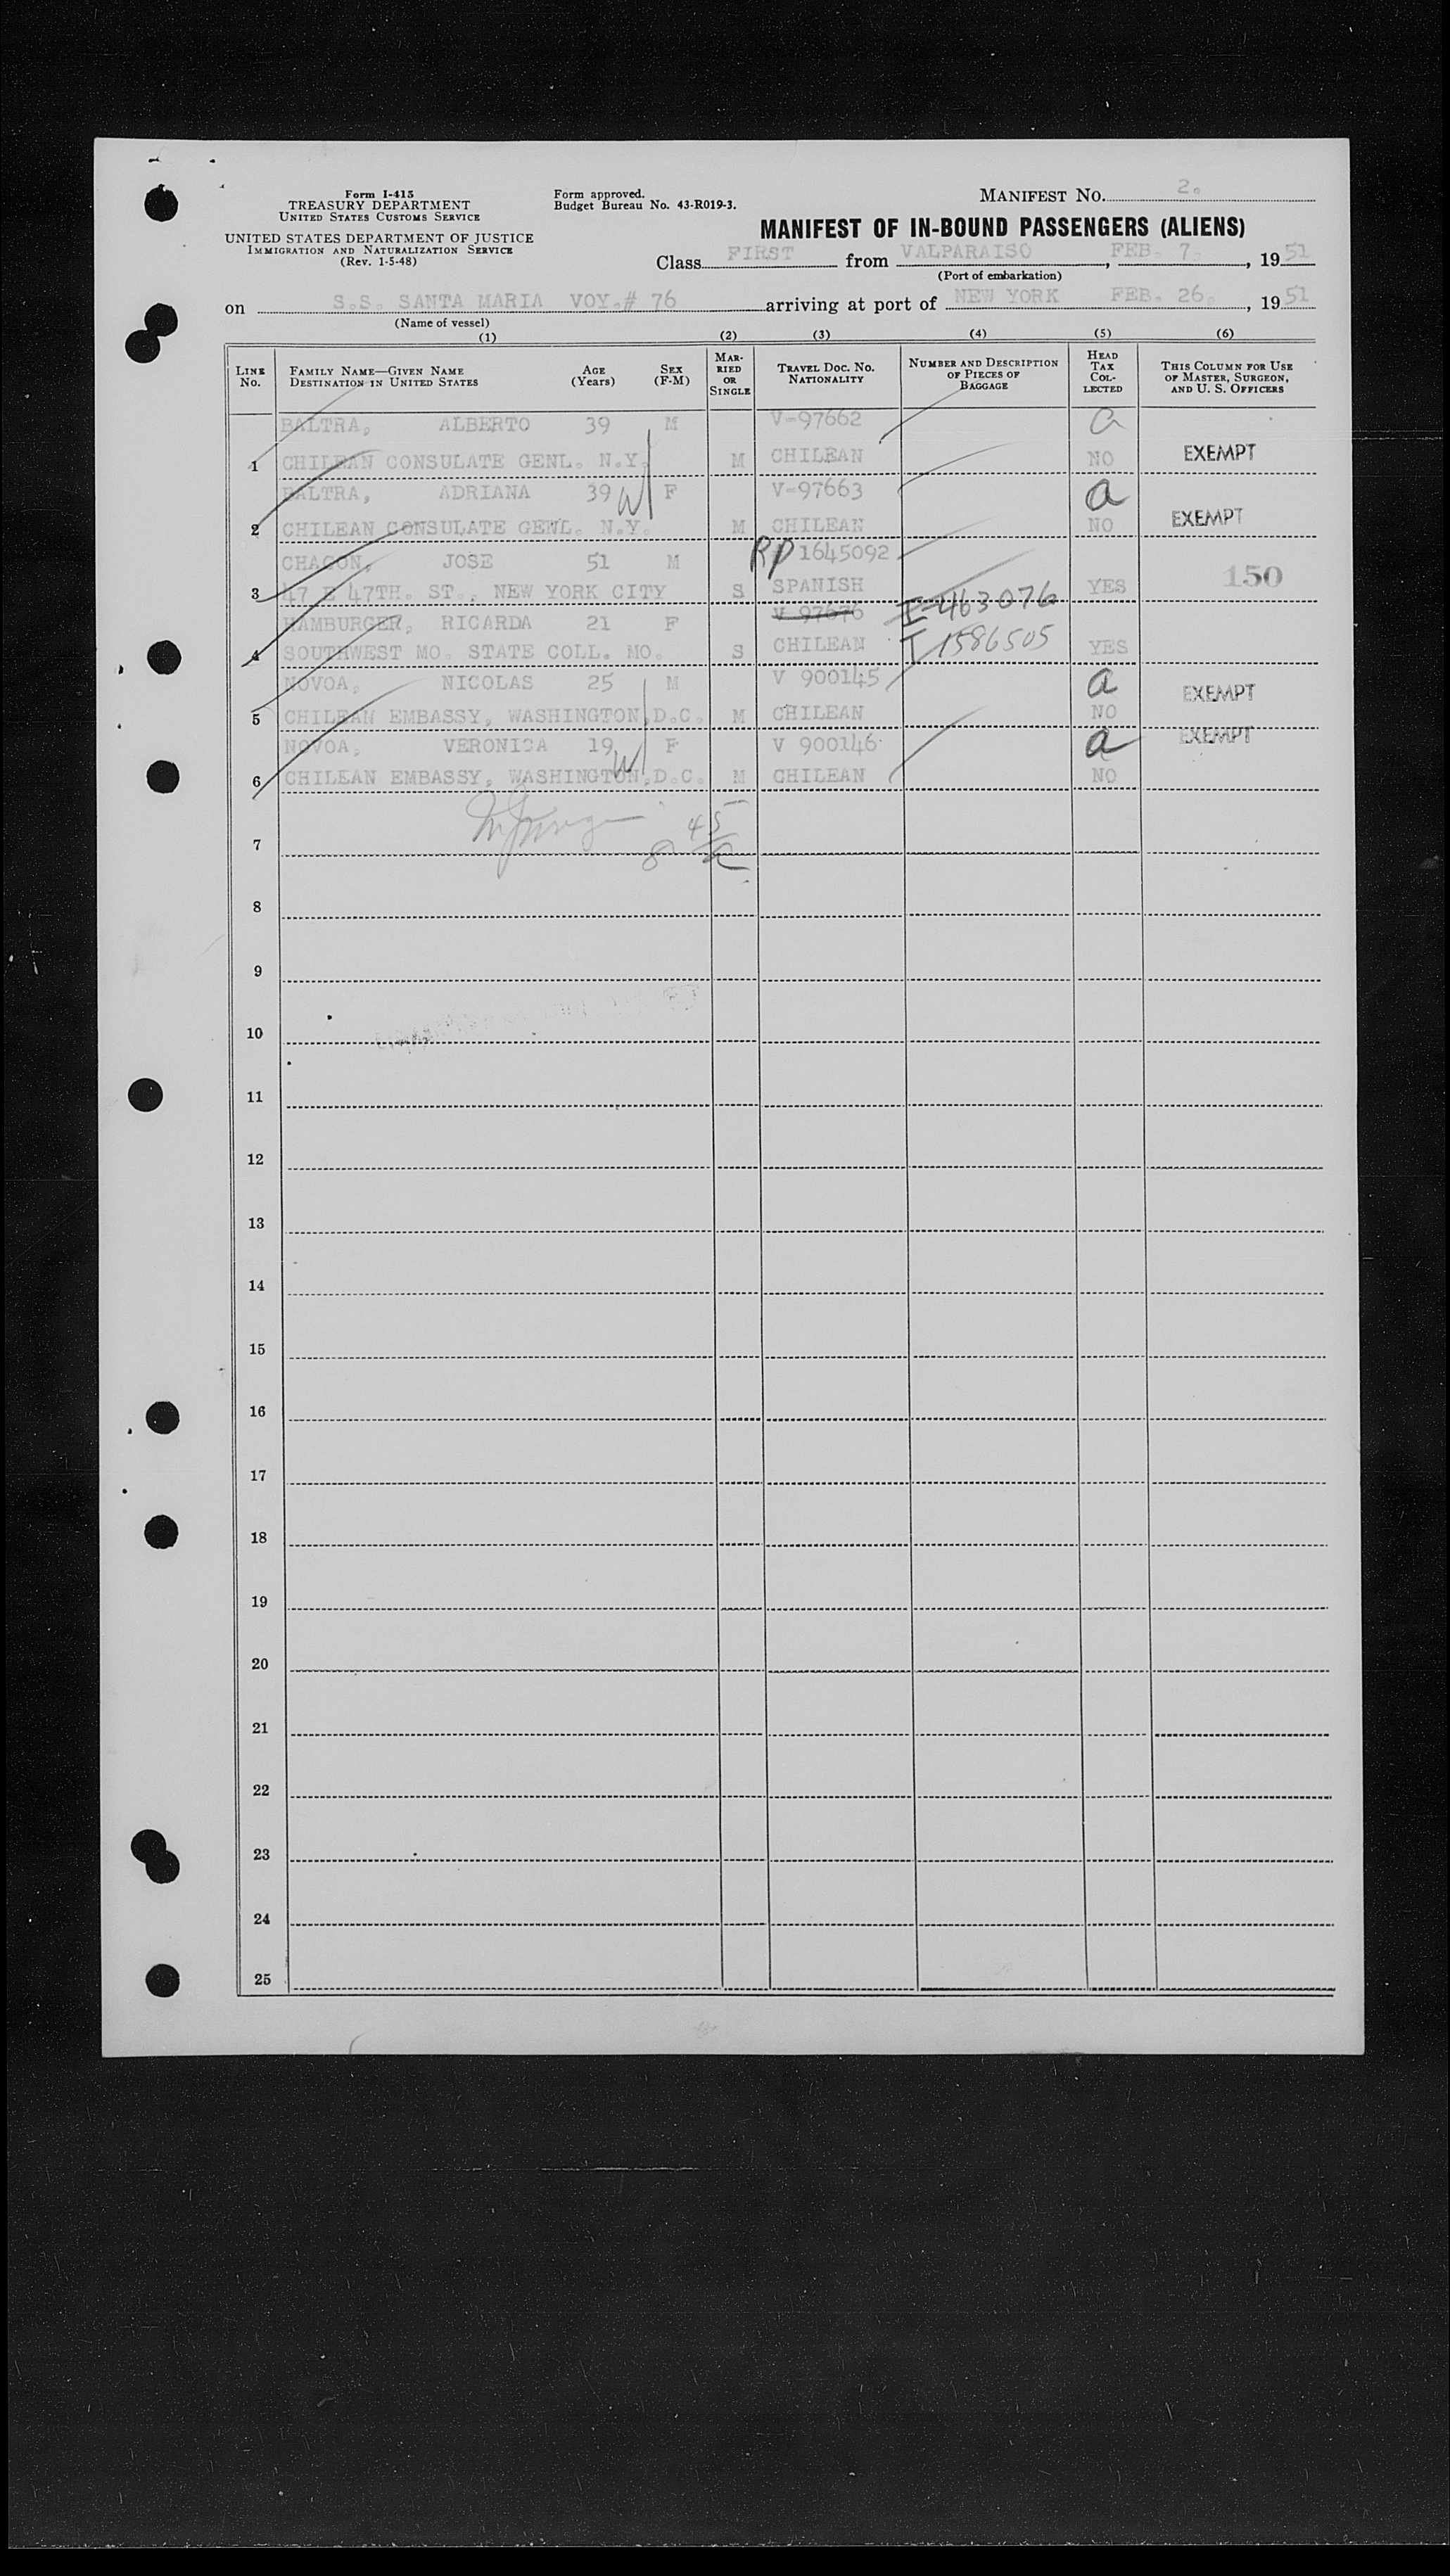 Form I-415
TREASURY DEPARTMENT
UNITED STATES CUSTOMS SERVICE
UNITED STATES DEPARTMENT OF JUSTICE
IMMIGRATION AND NATURALIZATION SERVICE
(Rev. 1-5-48)
Form approved.
Budget Bureau No. 43-R019-3.
MANIFEST NO. 2.
MANIFEST OF IN-BOUND PASSENGERS (ALIENS)
Class FIRST from VALPARAISO, FEB. 7, 1951
(Port of embarkation)
on S.S. SANTA MARIA VOY.# 76 arriving at port of NEW YORK FEB. 26, 1951
(Name of vessel)
(1) (2) (3) (4) (5) (6)
LINE NO. FAMILY NAME—GIVEN NAME DESTINATION IN UNITED STATES AGE (Years) SEX (F-M) MARRIED OR SINGLE TRAVEL DOC. NO. NATIONALITY NUMBER AND DESCRIPTION OF PIECES OF BAGGAGE HEAD TAX COLLECTED THIS COLUMN FOR USE OF MASTER, SURGEON, AND U. S. OFFICERS
BALTRA, ALBERTO 39 M V-97662 a
1 CHILEAN CONSULATE GENL. N.Y. M CHILEAN NO EXEMPT
BALTRA, ADRIANA 39 W F V-97663 a
2 CHILEAN CONSULATE GENL. N.Y. M CHILEAN NO EXEMPT
CHACON, JOSE 51 M RP 1645092
3 47 E 47TH. ST., NEW YORK CITY S SPANISH YES 150
HAMBURGER, RICARDA 21 F V 97676 I-463076
4 SOUTHWEST MO. STATE COLL. MO. S CHILEAN I 1586505 YES
NOVOA, NICOLAS 25 M V 900145 a EXEMPT
5 CHILEAN EMBASSY, WASHINGTON, D.C. M CHILEAN NO
NOVOA, VERONICA 19 W F V 900146 a EXEMPT
6 CHILEAN EMBASSY, WASHINGTON, D.C. M CHILEAN NO
7
8
9
10
11
12
13
14
15
16
17
18
19
20
21
22
23
24
25